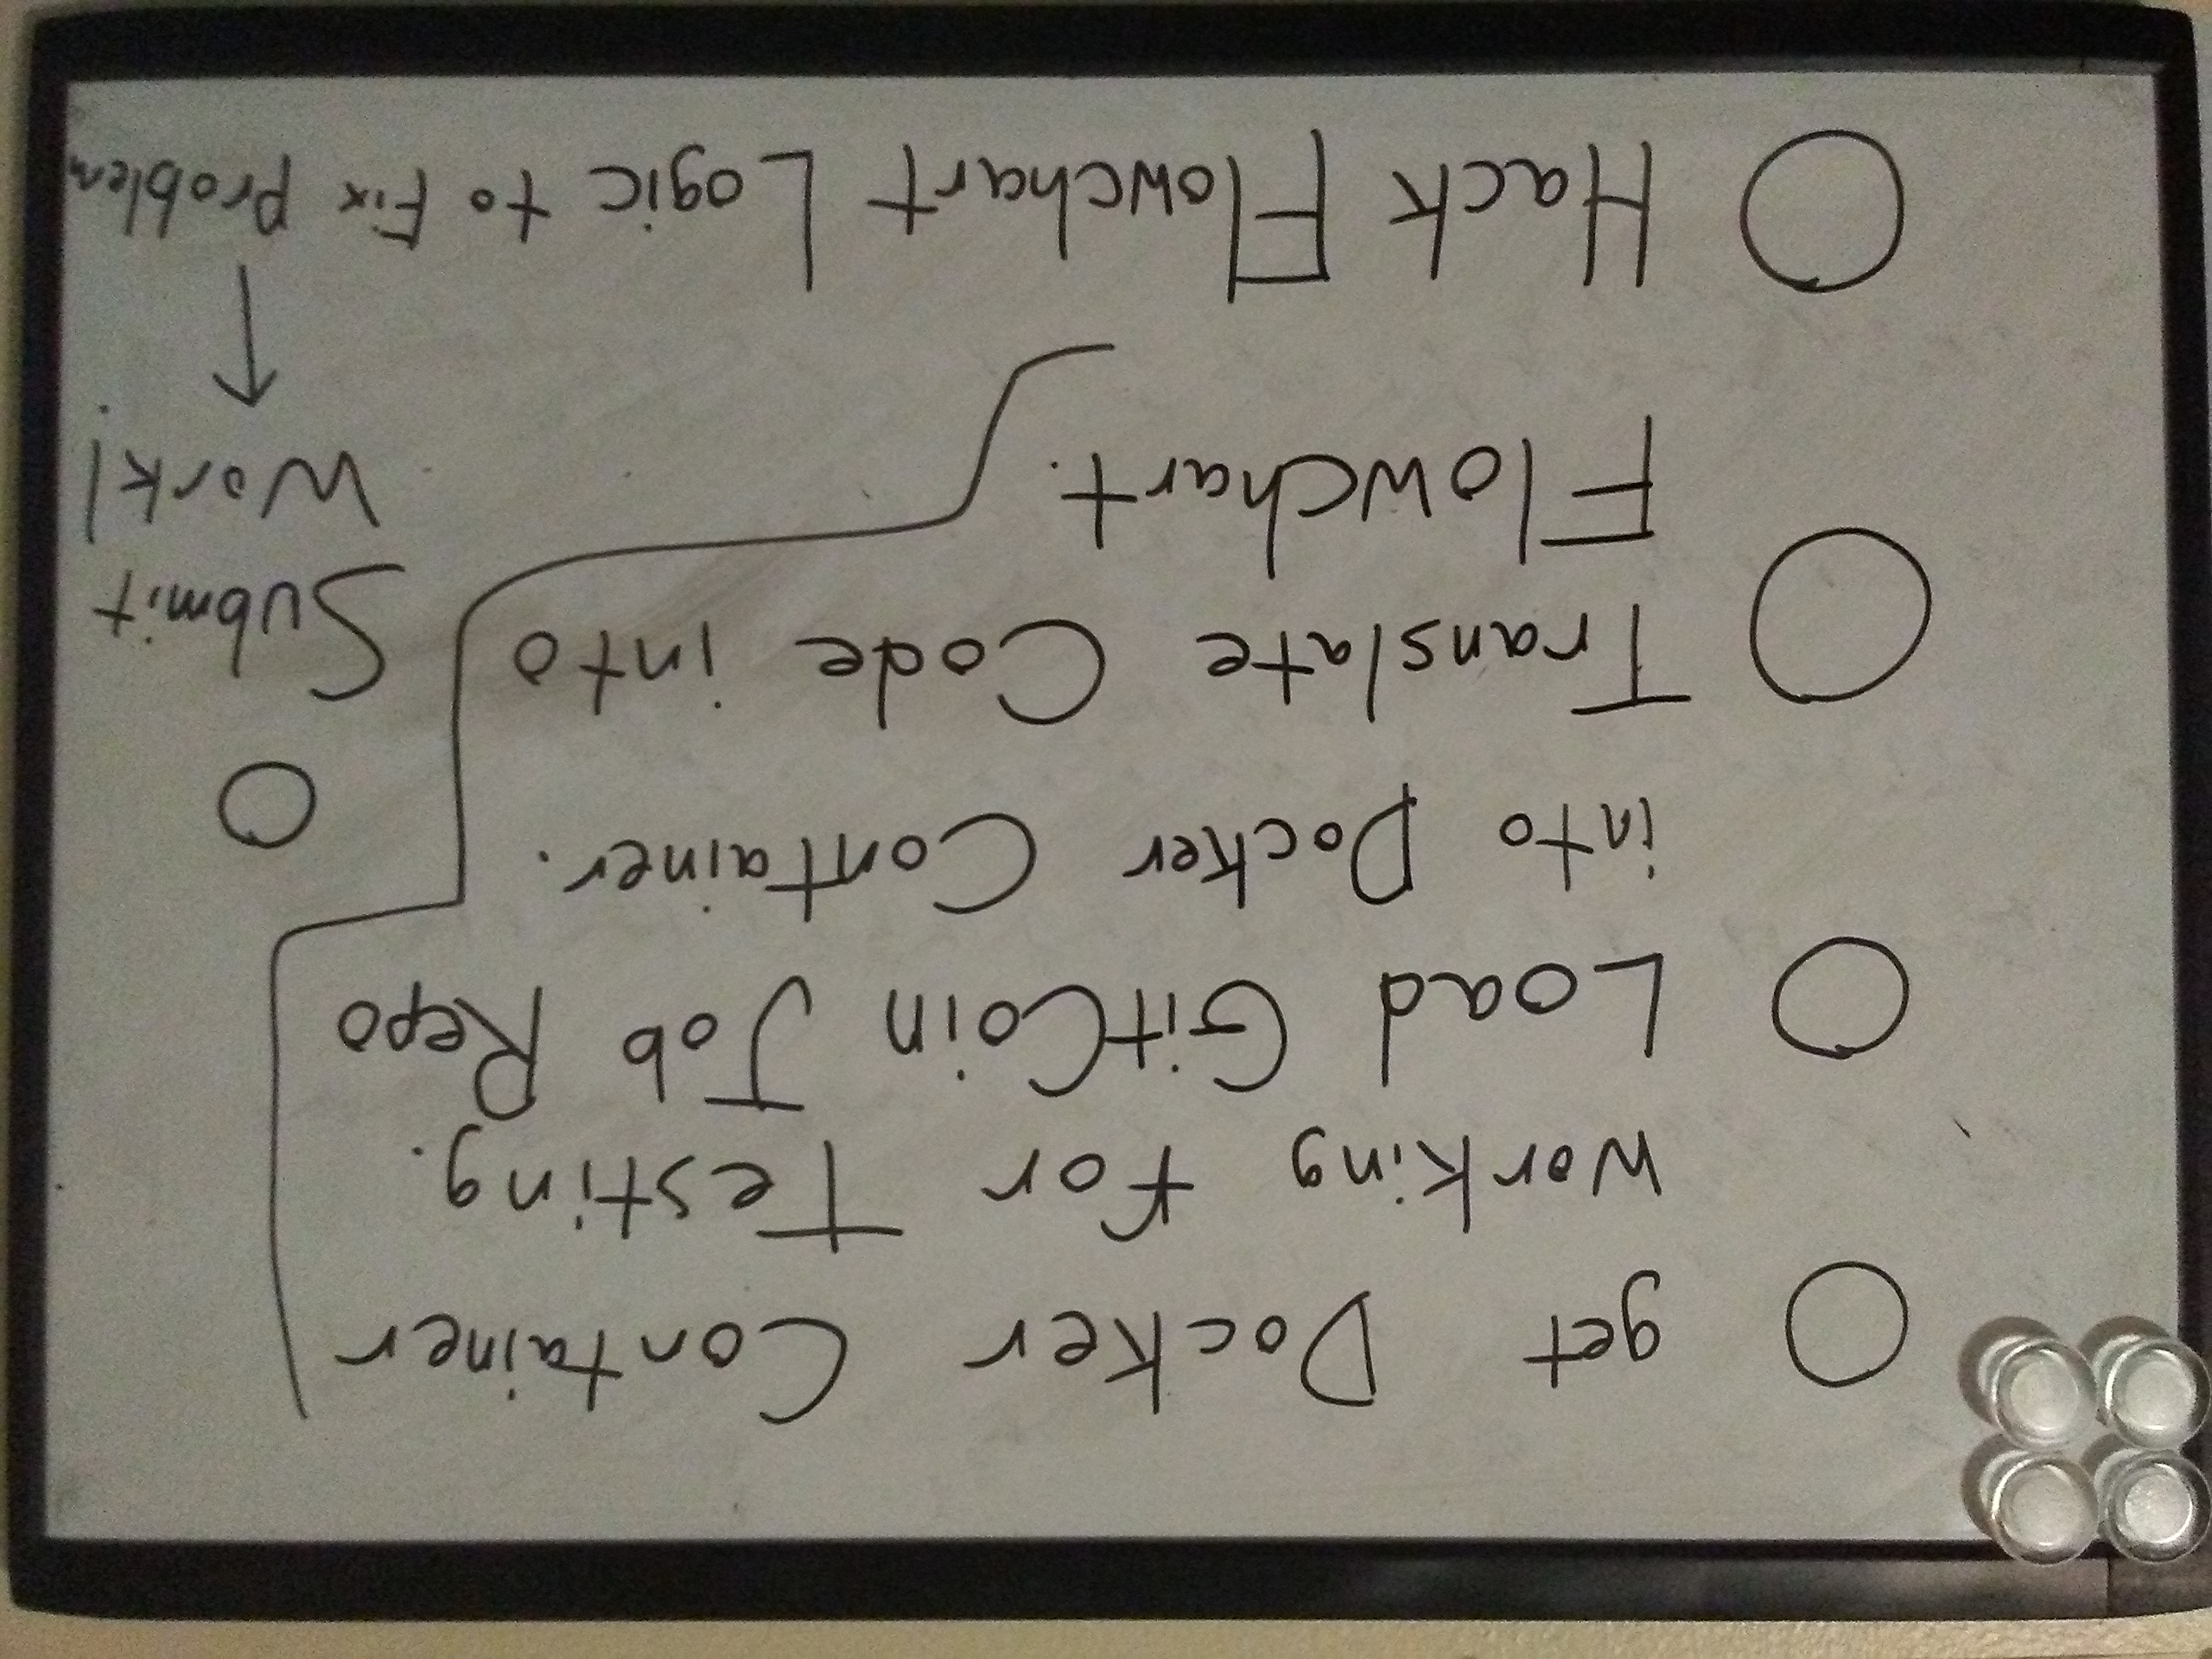 get Docker Container
working for Testing.
Load GitCoin Job Repo
into Docker Container.
Translate Code into
Flowchart.
Hack Flowchart Logic to Fix Problem
Submit
Work!